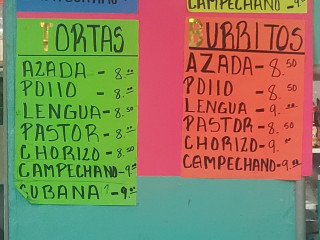 CAMPECHANO - 9.
TORTAS
AZADA - 8.00
POLLO - 8.
LENGUA - 8.50
PASTOR - 8.
CHORIZO - 8.50
CAMPECHANO - 9.00
CUBANA - 9.00
BURRITOS
AZADA - 8.50
POLLO - 8.50
LENGUA - 9.00
PASTOR - 8.50
CHORIZO - 9.00
CAMPECHANO - 9.00